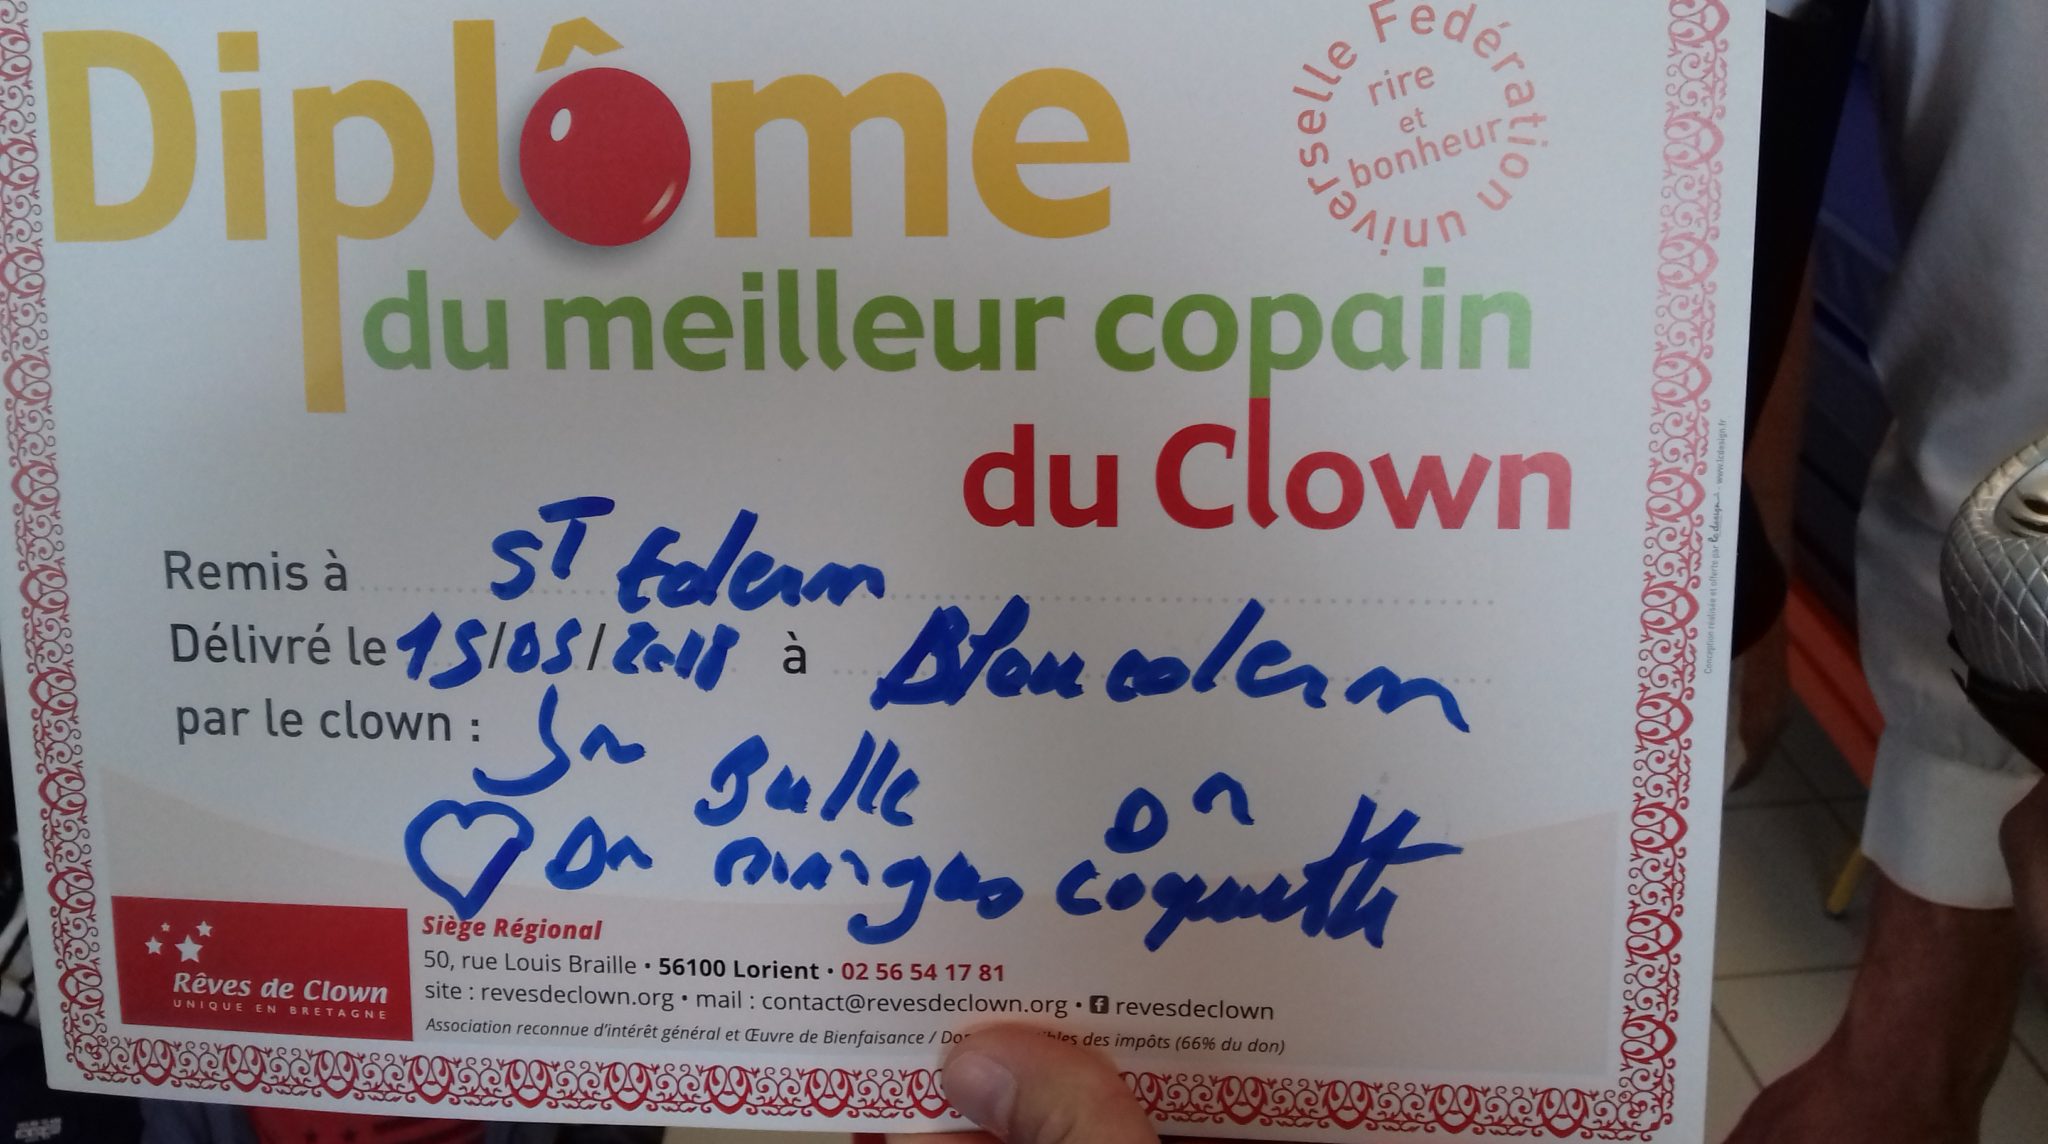 Diplôme
Fedération universelle
rire
et
bonheur
du meilleur copain
du Clown
Remis à ST Edern
Délivré le 15/05/2018 à Plouedern
par le clown :
Bulle Dr
Dr margas coquette
Siège Régional
50, rue Louis Braille • 56100 Lorient • 02 56 54 17 81
site : revesdeclown.org • mail : contact@revesdeclown.org • f revesdeclown
Association reconnue d'intérêt général et Œuvre de Bienfaisance / des impôts (66% du don)
Rêves de Clown
UNIQUE EN BRETAGNE
Conception réalisée et offerte par lc design - www.lcdesign.fr